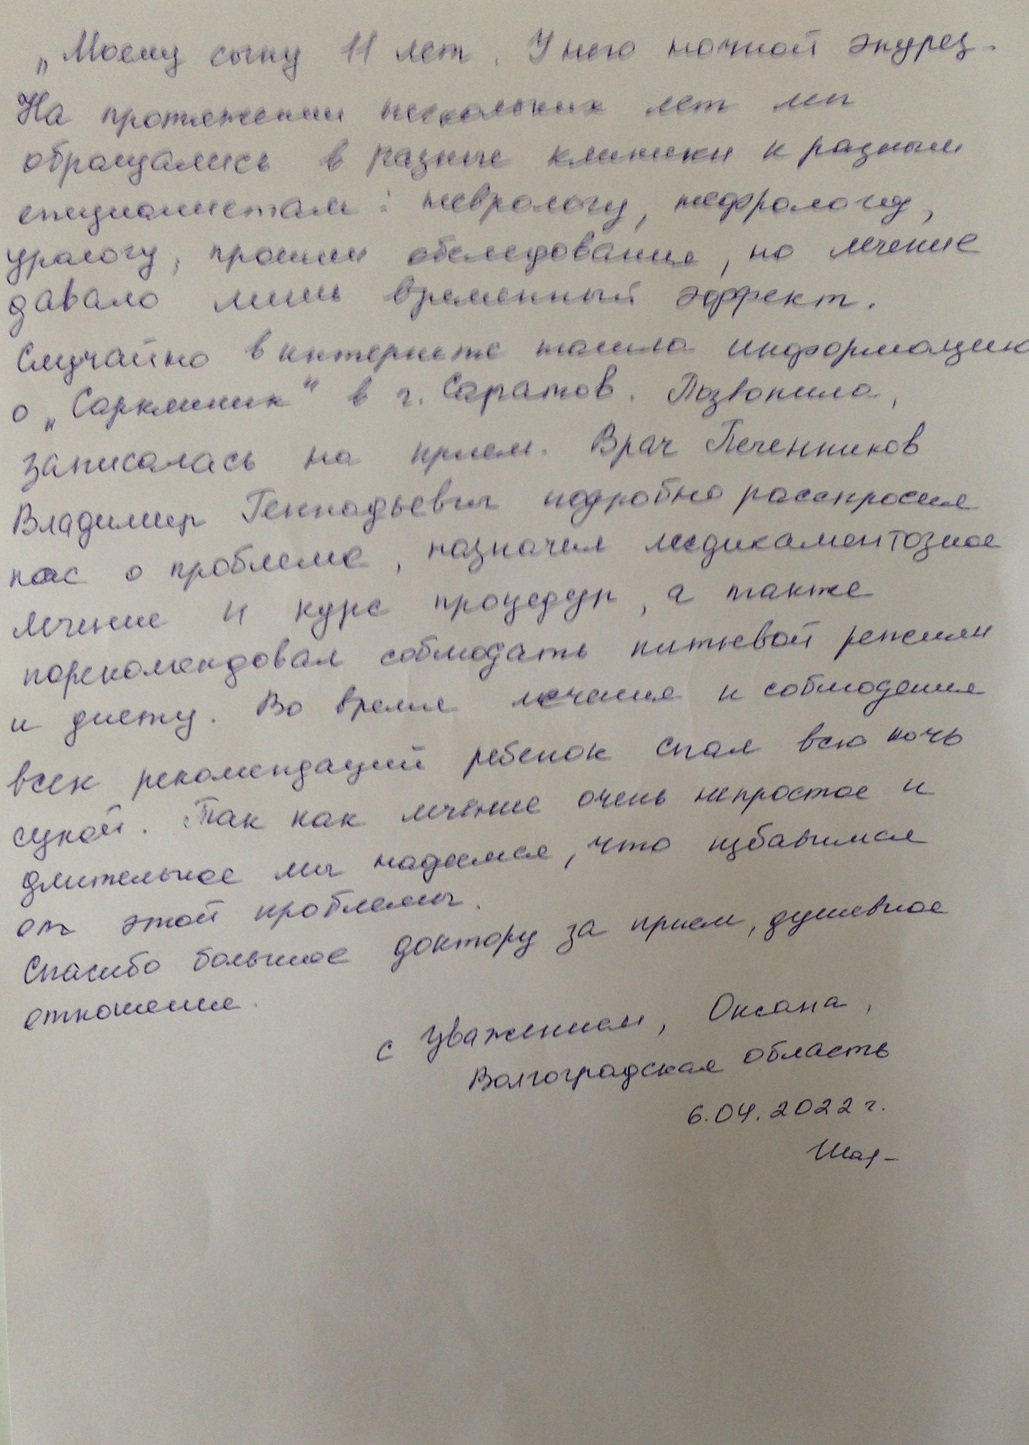 „Моему сыну 11 лет. У него ночной энурез.
На протяжении нескольких лет мы
обращались в разные клиники к разным
специалистам: неврологу, нефрологу,
урологу, прошли обследование, но лечение
давало лишь временный эффект.
Случайно в интернете нашла информацию
о „Сарклиник" в г. Саратов. Позвонила,
записалась на прием. Врач Печенников
Владимир Геннадьевич подробно расспросил
нас о проблеме, назначил медикаментозное
лечение и курс процедур, а также
порекомендовал соблюдать питьевой режим
и диету. Во время лечения и соблюдения
всех рекомендаций ребенок спал всю ночь
сухой. Так как лечение очень непростое и
длительное мы надеемся, что избавимся
от этой проблемы.
Спасибо большое доктору за прием, душевное
отношение.
с уважением, Оксана,
Волгоградская область
6.04.2022 г.